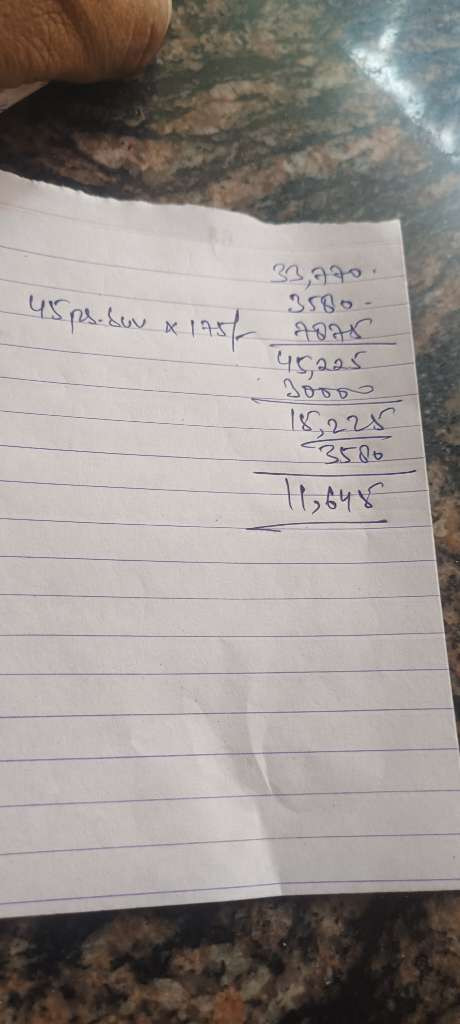 33,770.
3580-
45 ps. x 175/- 7875
45,225
30000
15,225
3580
11,645